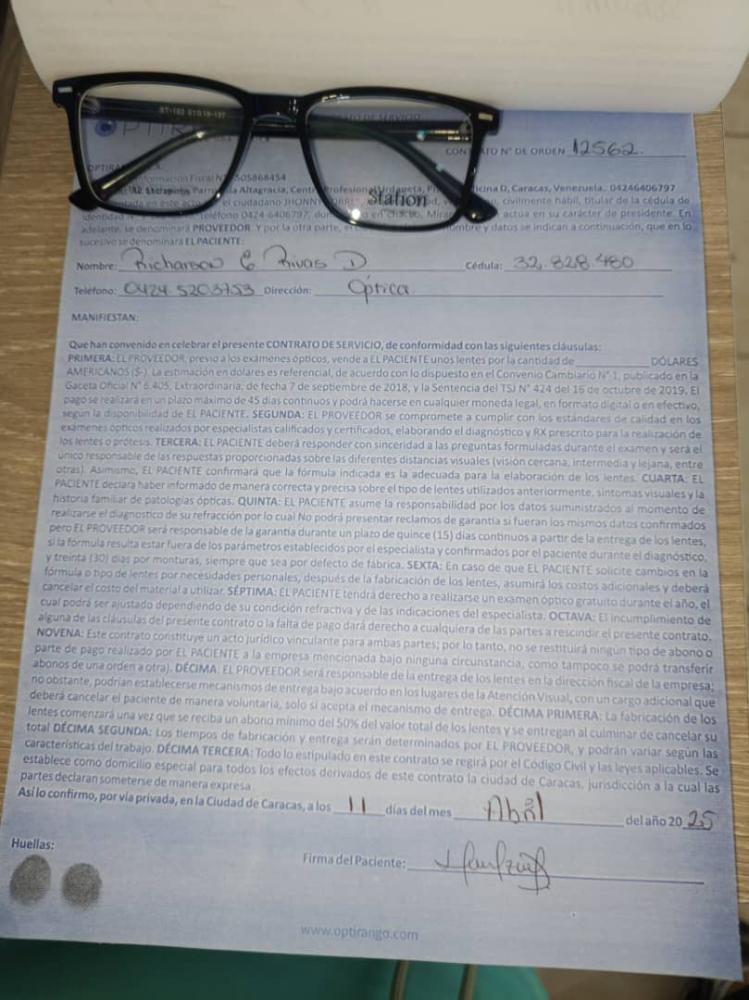 ST-182 51□18-137
OPTIRAN
CONTRATO DE SERVICIO
CONTRATO N° DE ORDEN 12562.
Información Fiscal N° 505868454
Altagracia, Centro Profesional Urdaneta, Oficina D, Caracas, Venezuela. 04246406797
Station
en este acto el ciudadano JHONNY civilmente hábil, titular de la cédula de
identidad N° teléfono 0424-6406797, en Chacao, actúa en su carácter de presidente. En
adelante, se denominará PROVEEDOR. Y por la otra parte, nombre y datos se indican a continuación, que en lo
sucesivo se denominará EL PACIENTE:
Nombre: Richarson E Rivas D Cédula: 32.828.480
Teléfono: 0424 5203753 Dirección: Óptica.
MANIFIESTAN:
Que han convenido en celebrar el presente CONTRATO DE SERVICIO, de conformidad con las siguientes cláusulas:
PRIMERA: EL PROVEEDOR, previo a los exámenes ópticos, vende a EL PACIENTE unos lentes por la cantidad de DÓLARES
AMERICANOS ($-). La estimación en dólares es referencial, de acuerdo con lo dispuesto en el Convenio Cambiario N° 1, publicado en la
Gaceta Oficial N° 6.405, Extraordinaria, de fecha 7 de septiembre de 2018, y la Sentencia del TSJ N° 424 del 16 de octubre de 2019. El
pago se realizará en un plazo máximo de 45 días continuos y podrá hacerse en cualquier moneda legal, en formato digital o en efectivo,
según la disponibilidad de EL PACIENTE. SEGUNDA: EL PROVEEDOR se compromete a cumplir con los estándares de calidad en los
exámenes ópticos realizados por especialistas calificados y certificados, elaborando el diagnóstico y RX prescrito para la realización de
los lentes o prótesis. TERCERA: EL PACIENTE deberá responder con sinceridad a las preguntas formuladas durante el examen y será el
único responsable de las respuestas proporcionadas sobre las diferentes distancias visuales (visión cercana, intermedia y lejana, entre
otras). Asimismo, EL PACIENTE confirmará que la fórmula indicada es la adecuada para la elaboración de los lentes. CUARTA: EL
PACIENTE declara haber informado de manera correcta y precisa sobre el tipo de lentes utilizados anteriormente, síntomas visuales y la
historia familiar de patologías ópticas. QUINTA: EL PACIENTE asume la responsabilidad por los datos suministrados al momento de
realizarse el diagnostico de su refracción por lo cual No podrá presentar reclamos de garantía si fueran los mismos datos confirmados
pero EL PROVEEDOR será responsable de la garantía durante un plazo de quince (15) días continuos a partir de la entrega de los lentes,
si la fórmula resulta estar fuera de los parámetros establecidos por el especialista y confirmados por el paciente durante el diagnóstico,
y treinta (30) días por monturas, siempre que sea por defecto de fábrica. SEXTA: En caso de que EL PACIENTE solicite cambios en la
fórmula o tipo de lentes por necesidades personales, después de la fabricación de los lentes, asumirá los costos adicionales y deberá
cancelar el costo del material a utilizar. SÉPTIMA: EL PACIENTE tendrá derecho a realizarse un examen óptico gratuito durante el año, el
cual podrá ser ajustado dependiendo de su condición refractiva y de las indicaciones del especialista. OCTAVA: El incumplimiento de
alguna de las cláusulas del presente contrato o la falta de pago dará derecho a cualquiera de las partes a rescindir el presente contrato.
NOVENA: Este contrato constituye un acto jurídico vinculante para ambas partes; por lo tanto, no se restituirá ningún tipo de abono o
parte de pago realizado por EL PACIENTE a la empresa mencionada bajo ninguna circunstancia, como tampoco se podrá transferir
abonos de una orden a otra). DÉCIMA: EL PROVEEDOR será responsable de la entrega de los lentes en la dirección fiscal de la empresa;
no obstante, podrían establecerse mecanismos de entrega bajo acuerdo en los lugares de la Atención Visual, con un cargo adicional que
deberá cancelar el paciente de manera voluntaria, solo si acepta el mecanismo de entrega. DÉCIMA PRIMERA: La fabricación de los
lentes comenzará una vez que se reciba un abono mínimo del 50% del valor total de los lentes y se entregan al culminar de cancelar su
total DÉCIMA SEGUNDA: Los tiempos de fabricación y entrega serán determinados por EL PROVEEDOR, y podrán variar según las
características del trabajo. DÉCIMA TERCERA: Todo lo estipulado en este contrato se regirá por el Código Civil y las leyes aplicables. Se
establece como domicilio especial para todos los efectos derivados de este contrato la ciudad de Caracas, jurisdicción a la cual las
partes declaran someterse de manera expresa
Así lo confirmo, por vía privada, en la Ciudad de Caracas, a los 11 días del mes Abril del año 2025
Huellas:
Firma del Paciente:
www.optirango.com